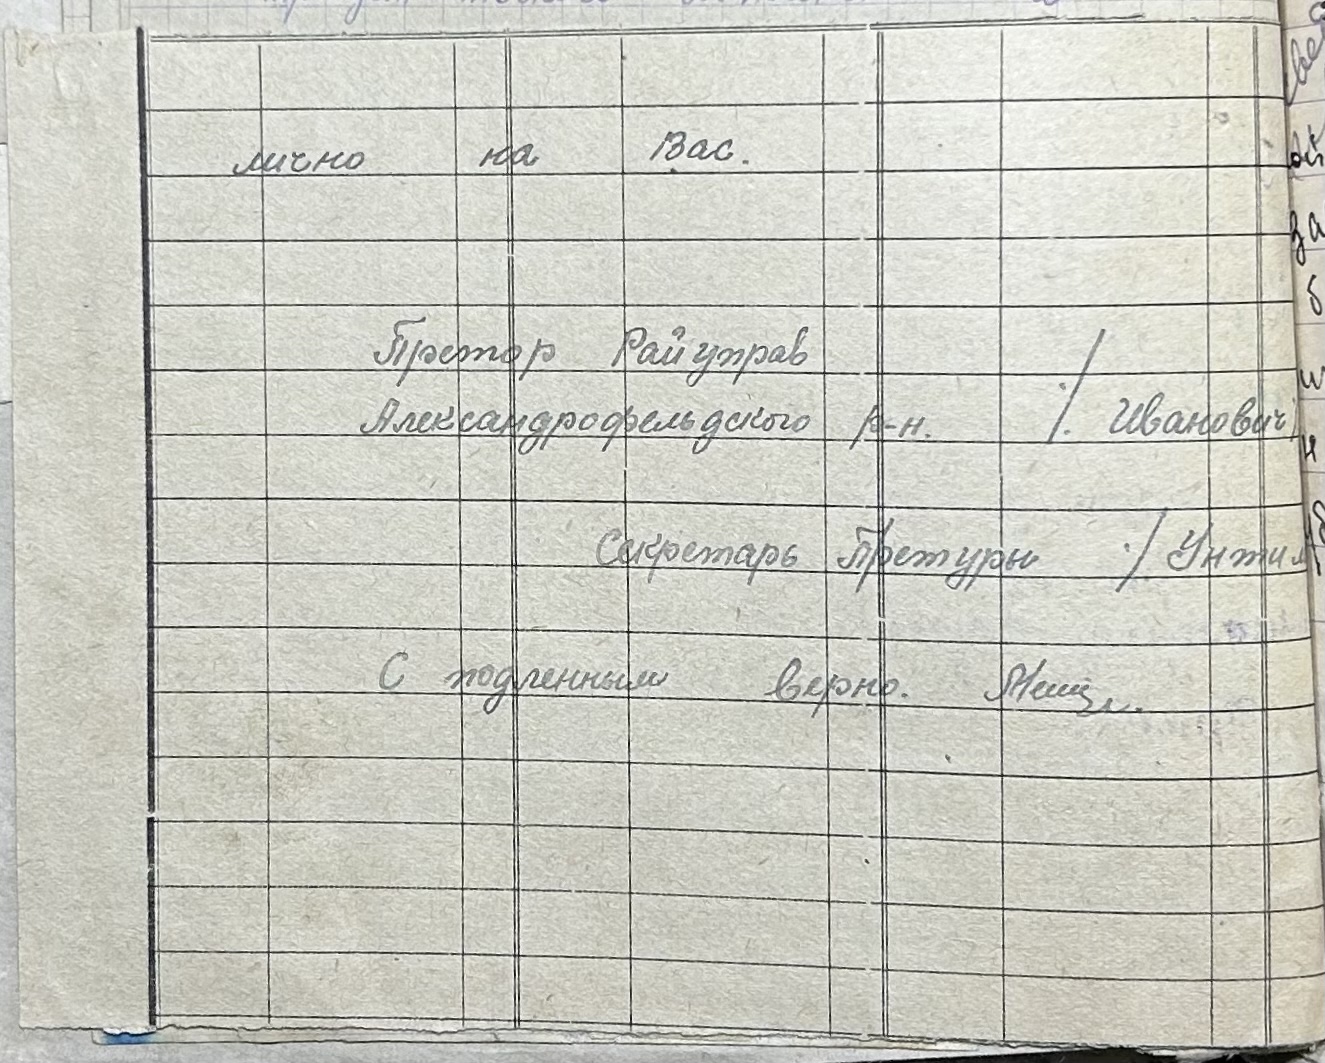 лично на Вас.
Претор Райуправ
Александрофельдского р-н. /. Иванович/
Секретарь Претуры ./ Унтил
С подленным верно.